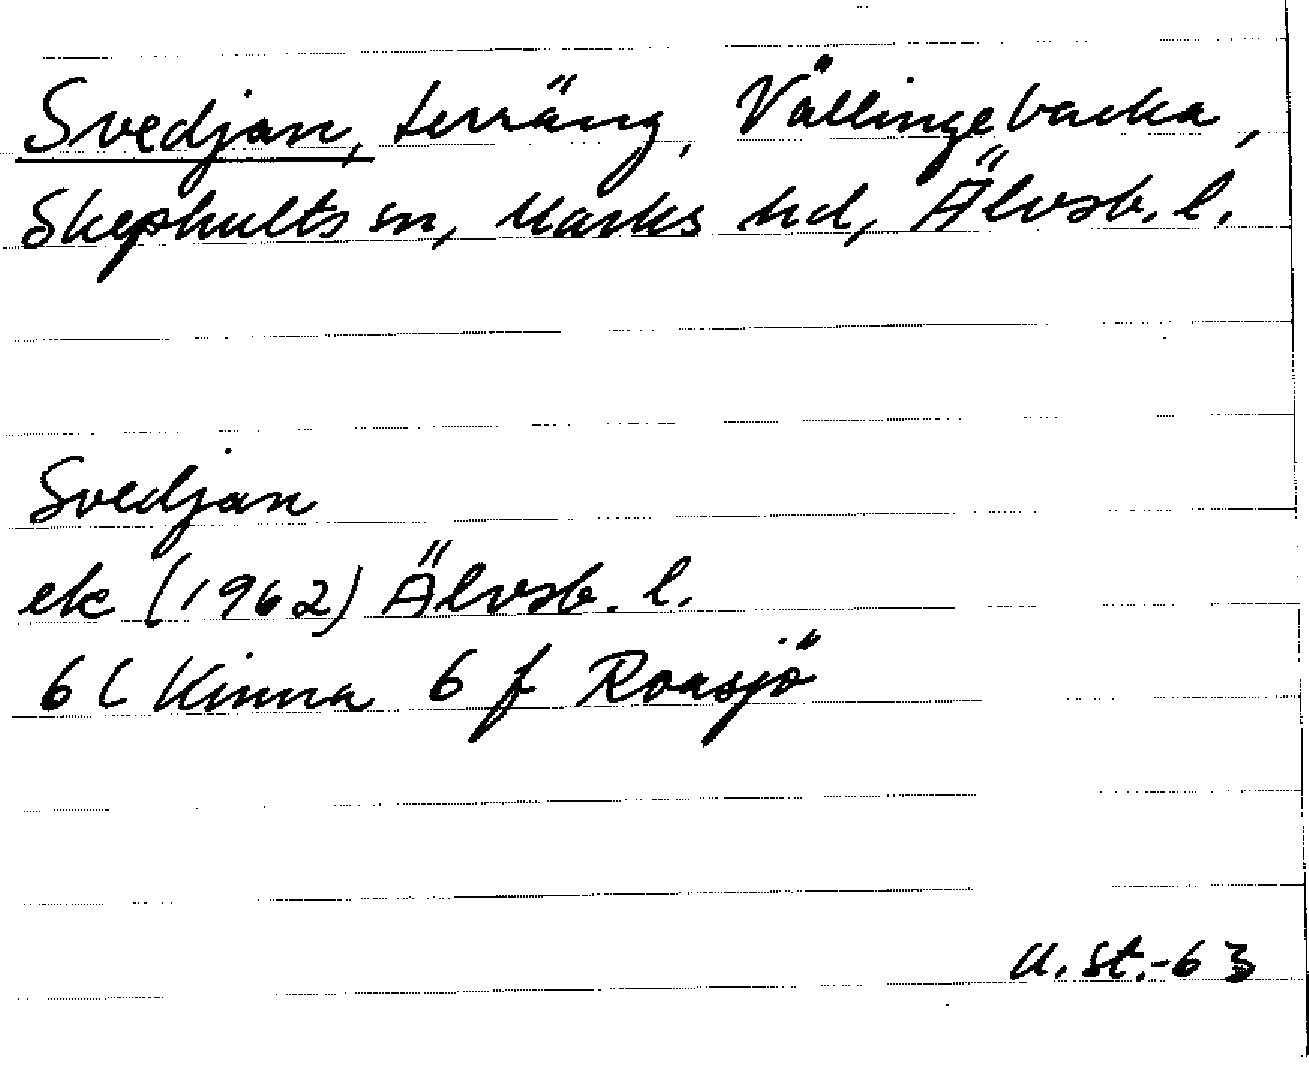 Svedjan, terräng, Vållingebacka,
Skephults sn, Marks hd, Älvsb. l.
Svedjan
ek (1962) Älvsb. l.
6 C Kinna 6 f Roasjö
U. St.-63